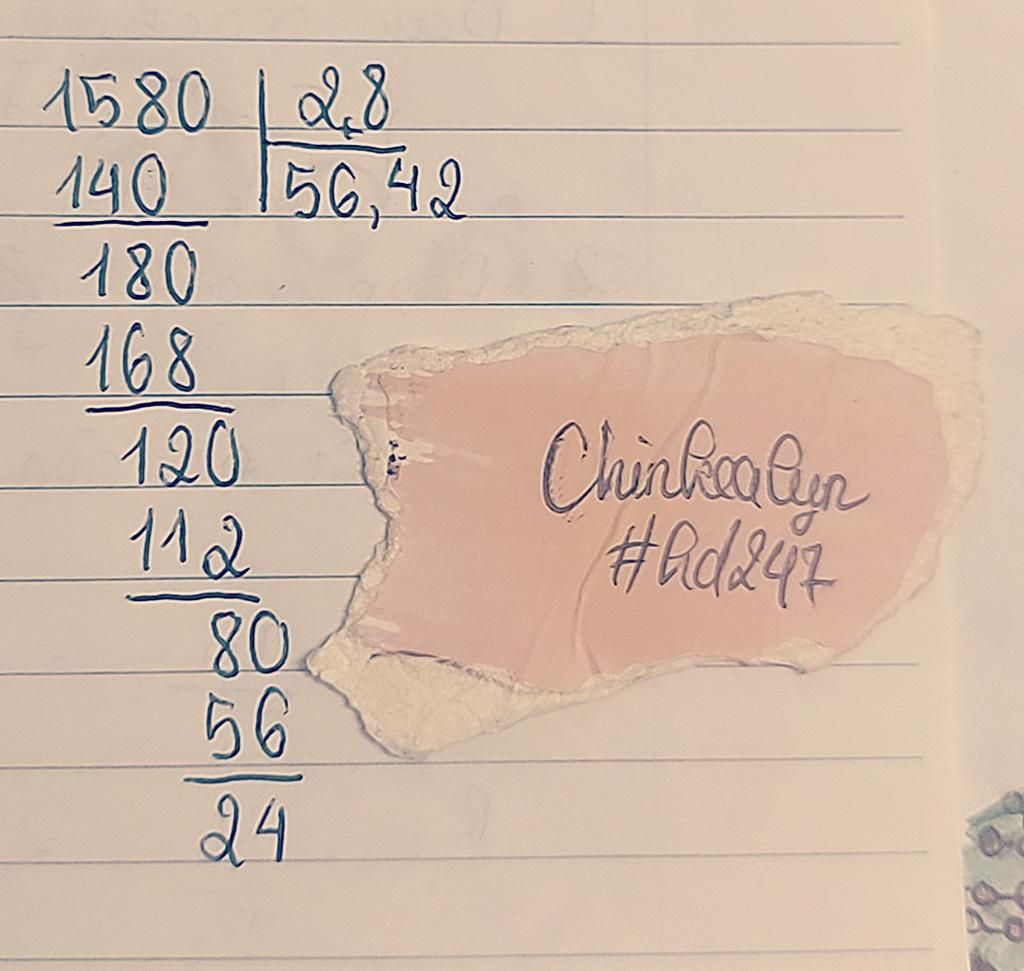 1580 | 2,8
140 | 56,42
180
168
120
112
80
56
24
Chinkealyn
#hd247